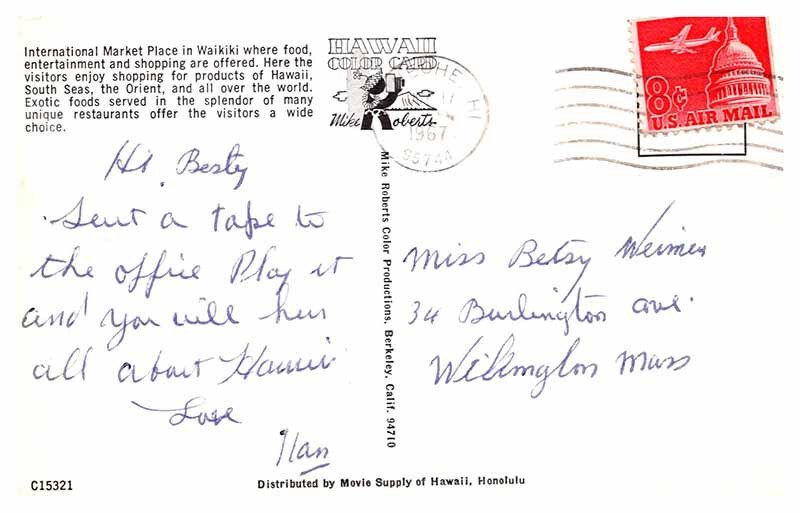 International Market Place in Waikiki where food,
entertainment and shopping are offered. Here the
visitors enjoy shopping for products of Hawaii,
South Seas, the Orient, and all over the world.
Exotic foods served in the splendor of many
unique restaurants offer the visitors a wide
choice.
HAWAII
COLOR CARD
Mike Roberts
HI
1967
8¢
U.S. AIR MAIL
Hi Besty
Sent a tape to
the office Play it
and you will hear
all about Hawaii
Love
Nan
Mike Roberts Color Productions, Berkeley, Calif. 94710
Miss Betsy
34 Burlington ave.
Wilmington Mass
C15321
Distributed by Movie Supply of Hawaii, Honolulu